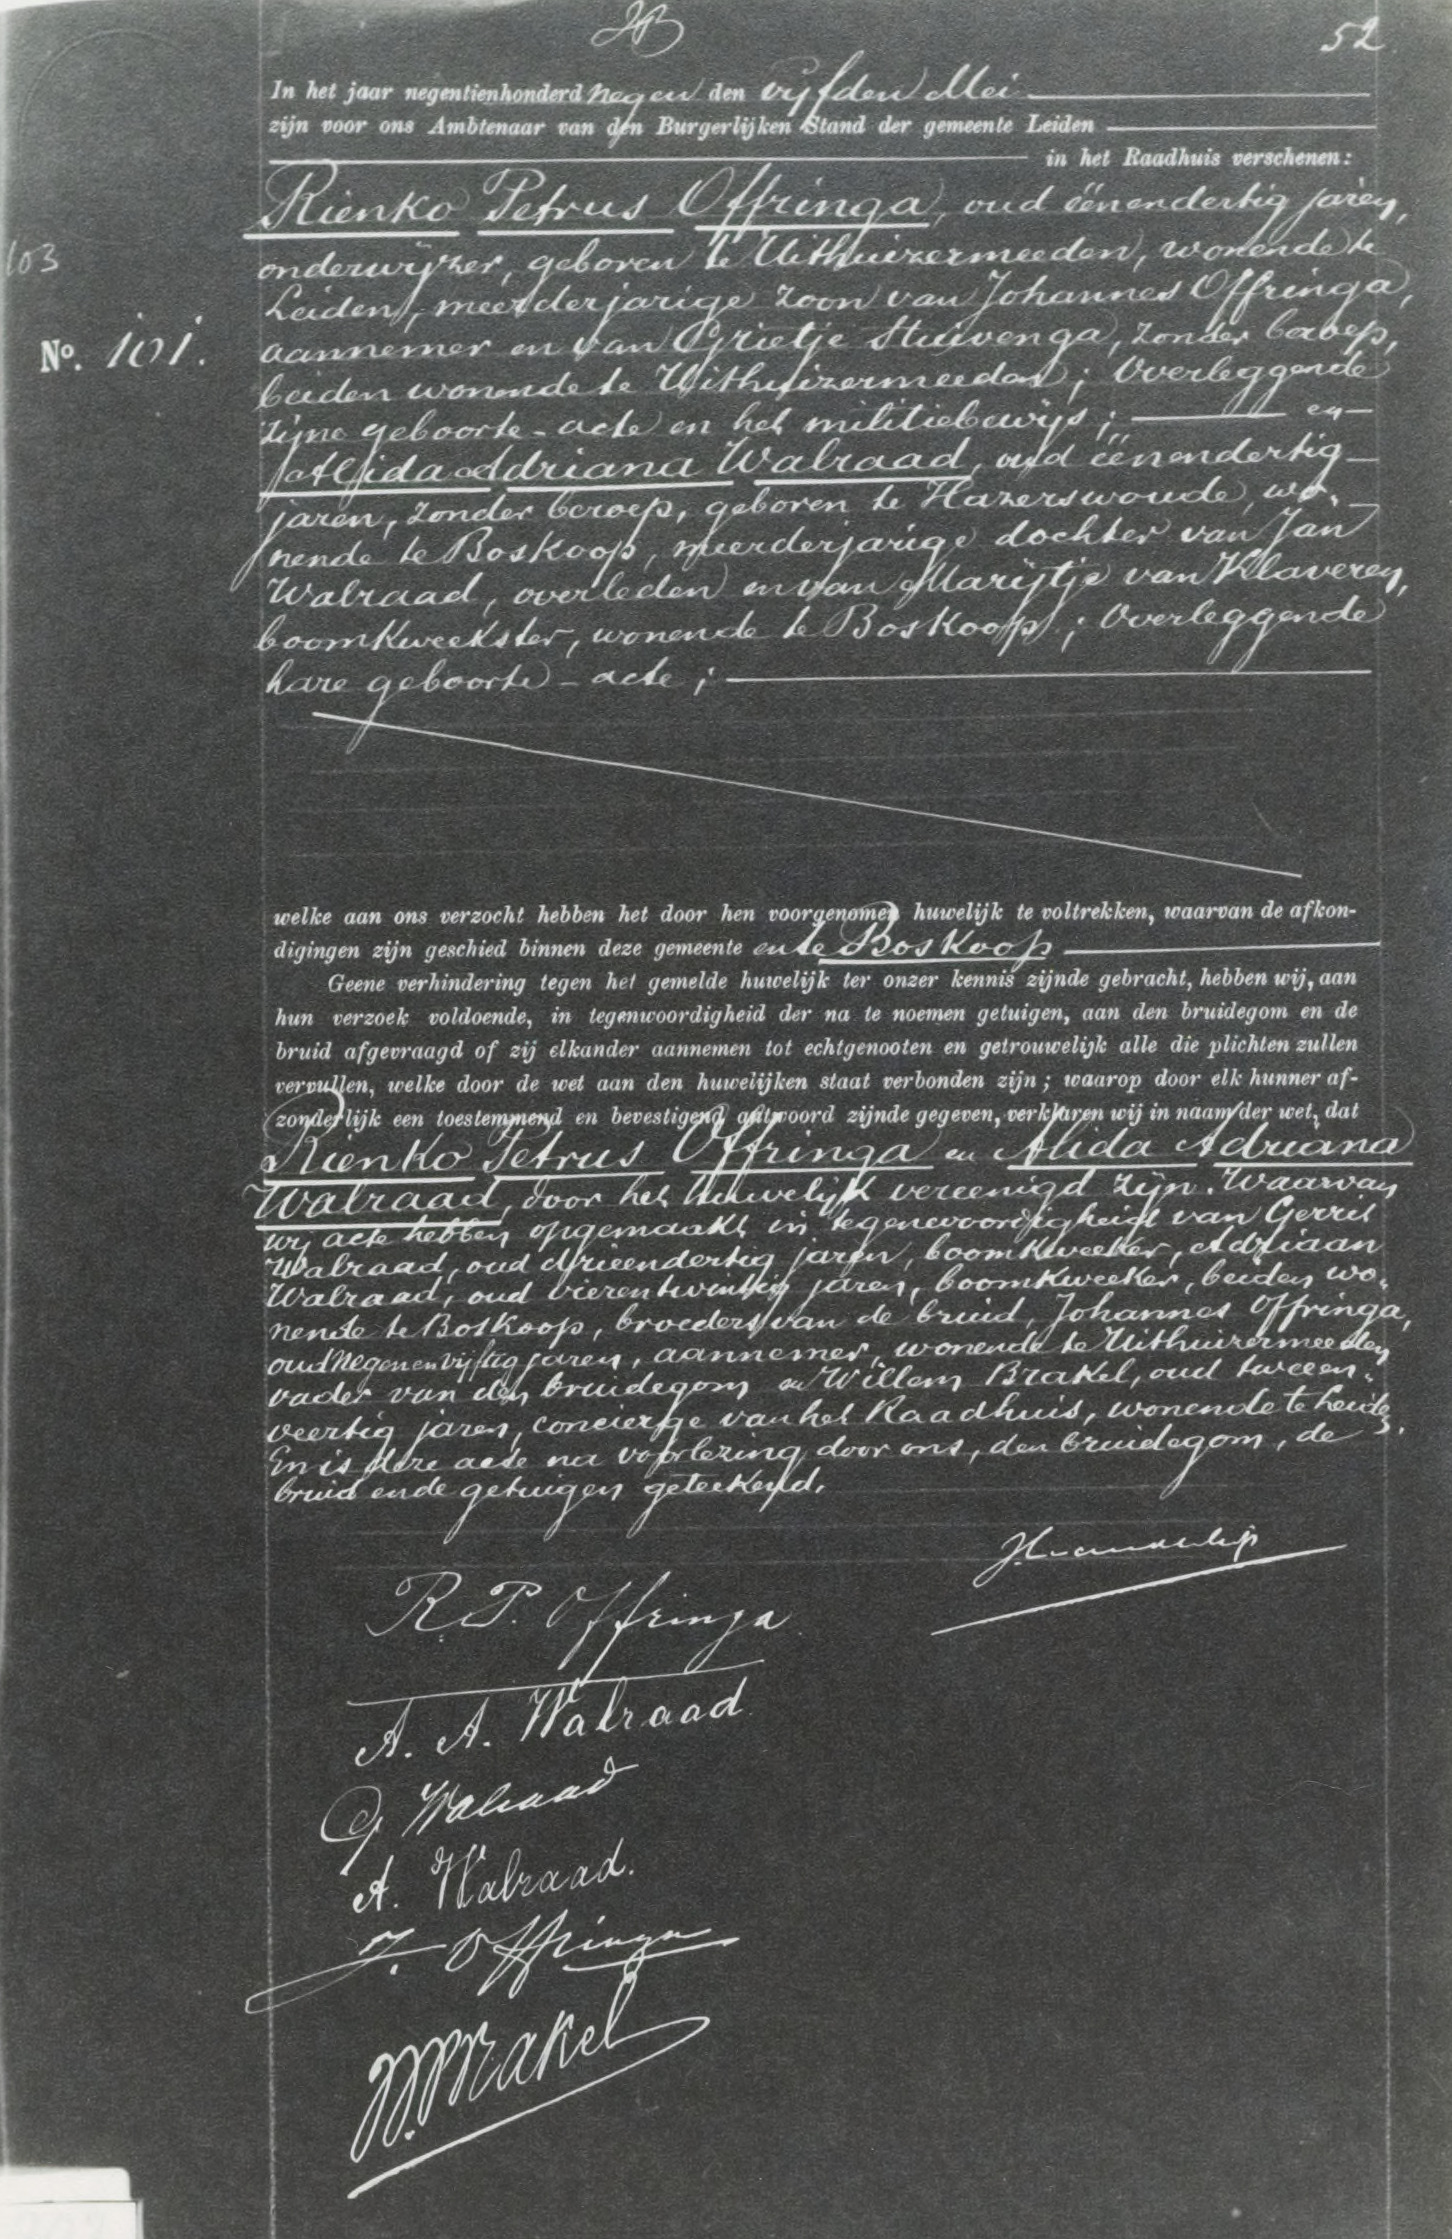 52
In het jaar negentienhonderd negen den vijfden Mei
zijn voor ons Ambtenaar van den Burgerlijken Stand der gemeente Leiden
in het Raadhuis verschenen:
Rienko Petrus Offringa, oud éénendertig jaren,
103
onderwijzer, geboren te Uithuizermeeden, wonende te
Leiden, meerderjarige zoon van Johannes Offringa,
No. 101.
aannemer en van Grietje Stuivenga, zonder beroep,
beiden wonende te Uithuizermeeden; Overleggende
zijne geboorte-acte en het militiebewijs; en
Alida Adriana Walraad, oud éénendertig
jaren, zonder beroep, geboren te Hazerswoude, wo-
nende te Boskoop, meerderjarige dochter van Jan
Walraad, overleden en van Marijtje van Klaveren,
boomkweekster, wonende te Boskoop; Overleggende
hare geboorte-acte;
welke aan ons verzocht hebben het door hen voorgenomen huwelijk te voltrekken, waarvan de afkon-
digingen zijn geschied binnen deze gemeente en te Boskoop
Geene verhindering tegen het gemelde huwelijk ter onzer kennis zijnde gebracht, hebben wij, aan
hun verzoek voldoende, in tegenwoordigheid der na te noemen getuigen, aan den bruidegom en de
bruid afgevraagd of zij elkander aannemen tot echtgenooten en getrouwelijk alle die plichten zullen
vervullen, welke door de wet aan den huwelijken staat verbonden zijn; waarop door elk hunner af-
zonderlijk een toestemmend en bevestigend antwoord zijnde gegeven, verklaren wij in naam der wet, dat
Rienko Petrus Offringa en Alida Adriana
Walraad, door het huwelijk vereenigd zijn. Waarvan
wij acte hebben opgemaakt in tegenwoordigheid van Gerrit
Walraad, oud drieendertig jaren, boomkweeker, Adriaan
Walraad, oud vierentwintig jaren, boomkweeker, beiden wo-
nende te Boskoop, broeders van de bruid, Johannes Offringa,
oud negenenvijftig jaren, aannemer, wonende te Uithuizermeeden
vader van den bruidegom en Willem Brakel, oud tweeen-
veertig jaren, concierge van het Raadhuis, wonende te Leiden.
En is deze acte na voorlezing door ons, den bruidegom, de
bruid en de getuigen geteekend.
R. P. Offringa
A. A. Walraad
G Walraad
A. Walraad.
J. Offringa
W. Brakel